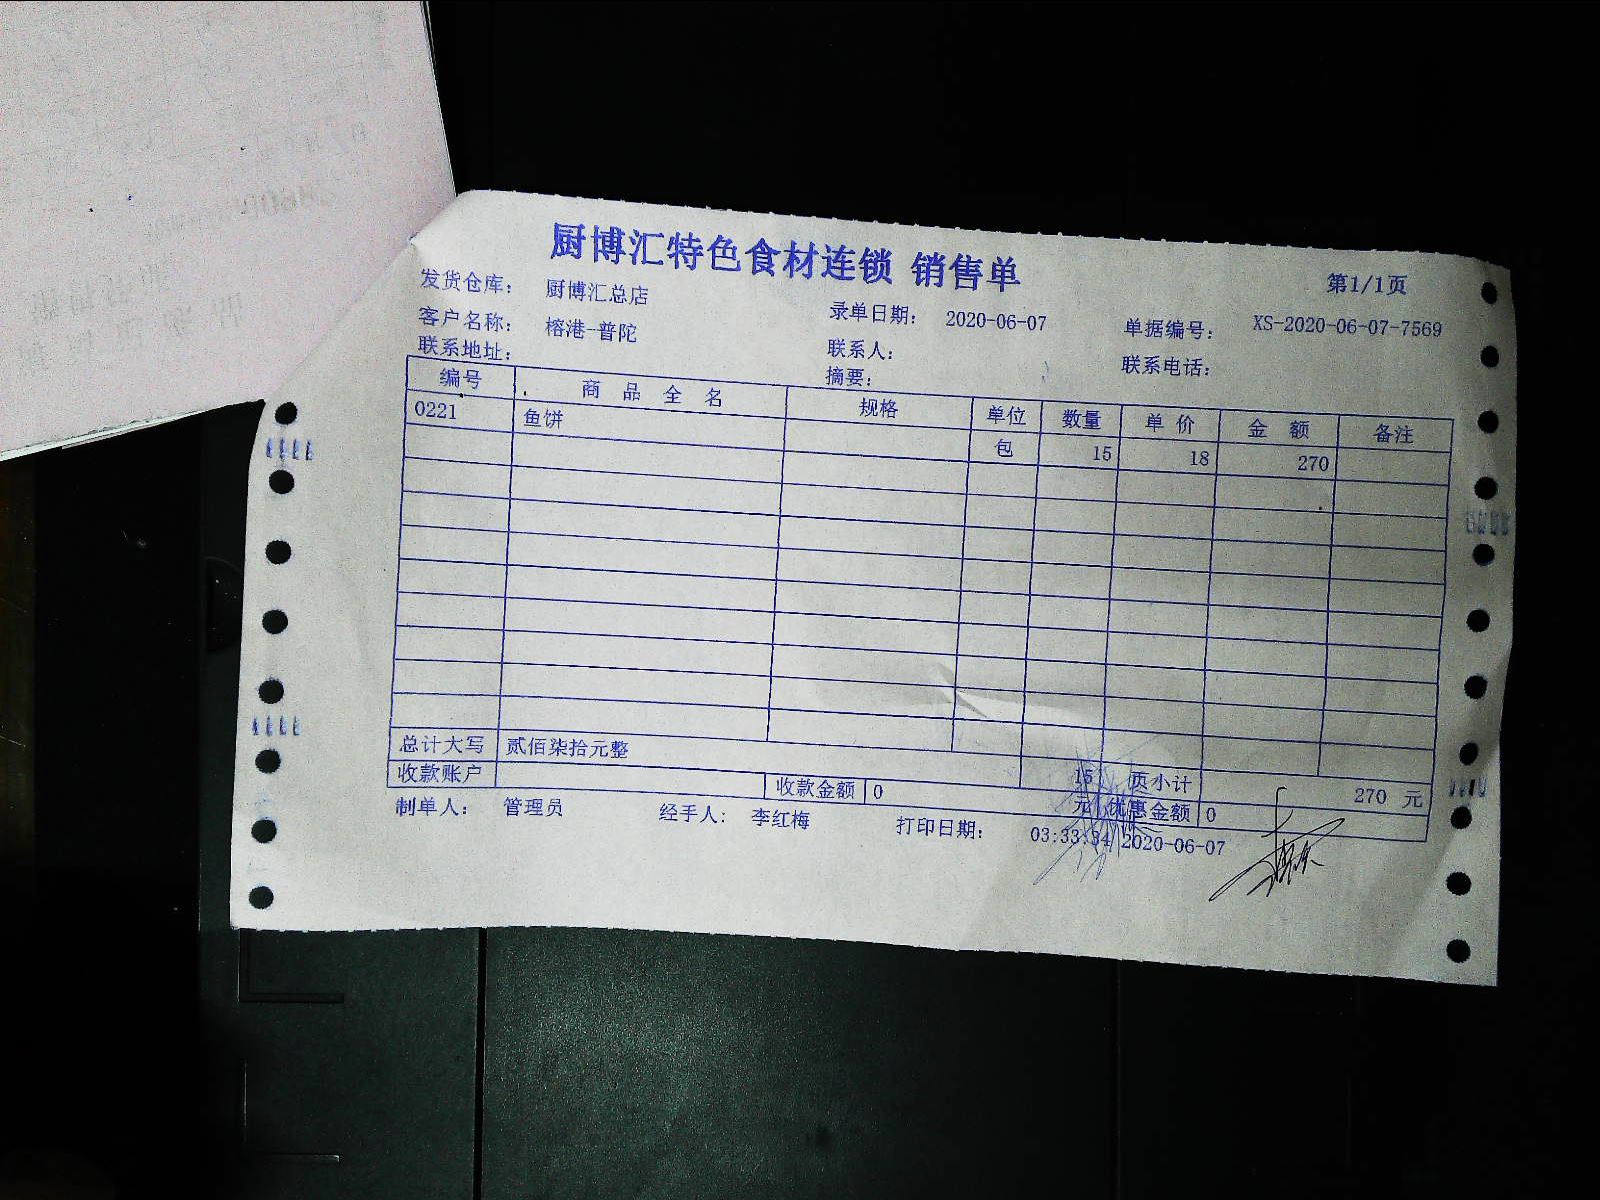 厨博汇特色食材连锁 销售单
第1/1页
发货仓库： 厨博汇总店 录单日期： 2020-06-07 单据编号： XS-2020-06-07-7569
客户名称： 榕港-普陀 联系人： 联系电话：
联系地址： 摘要：
编号 商品全名 规格 单位 数量 单价 金额 备注
0221 鱼饼 包 15 18 270
总计大写 贰佰柒拾元整 15 页小计 270 元
收款账户 收款金额 0 元 优惠金额 0
制单人： 管理员 经手人： 李红梅 打印日期： 03:33:34 2020-06-07